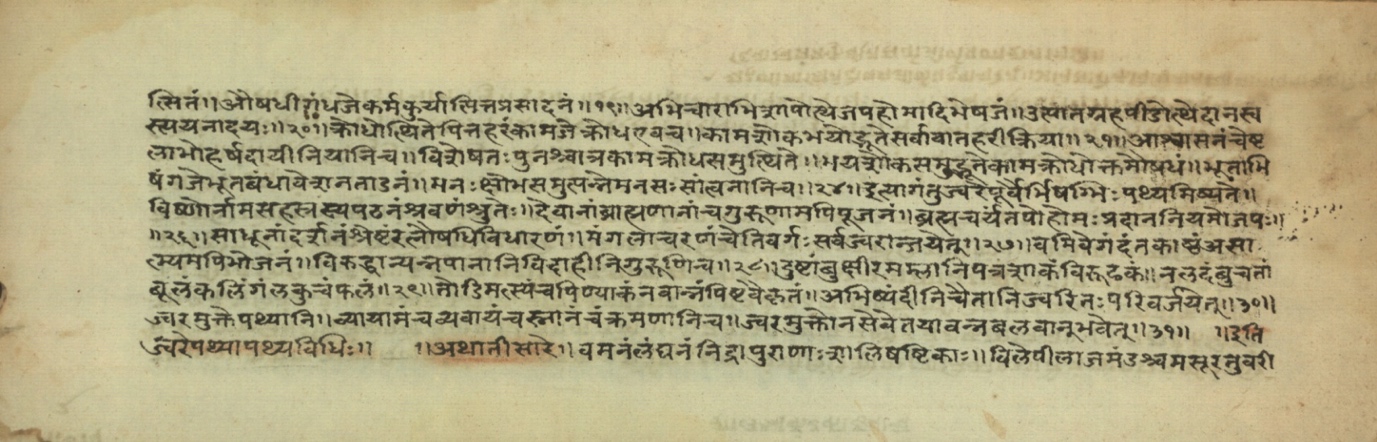 त्सितं॥औषधीगंधजेकर्मकुर्यात्पित्तप्रसादनं॥१९॥अभिचाराभिशापोत्थेजपहोमादिभेषजं॥उत्पातग्रहपीडोत्थेदानस्व
स्त्ययनादयः॥२०॥क्रोधोत्थितेपित्तहरंकामजेक्रोधएवच॥कामशोकभयोद्भूतेसर्वावातहरीक्रिया॥२१॥आश्वासनंचेष्ट
लाभोहर्षदायीनियानिच॥विशेषतःपुनश्चात्रकामक्रोधसमुत्थिते॥भयशोकसमुद्भूतेकामक्रोधोक्तमौषधं॥भूताभि
षंगजेभूतबंधावेशनताडनं॥मनःक्षोभसमुत्पन्नेमनसःसांत्वनानिच॥२४॥इत्यागंतुज्वरेपूर्वैर्भिषग्भिःपथ्यमिष्यते॥
विष्णोर्नामसहस्रस्यपठनंश्रवणंश्रुतेः॥देवानांब्राह्मणानांचगुरूणामपिपूजनं॥ब्रह्मचर्यंतपोहोमःप्रदाननियमोजपः॥
॥२६॥साधूनांदर्शनंश्रेष्टंरत्नौषधिविधारणं॥मंगलाचरणंचेतिवर्गःसर्वज्वरान्जयेत्॥२७॥वमिवेगंदंतकाष्ठंअसा
त्म्यमपिभोजनं॥विरुद्धान्यन्नपानानिविदाहीनिगुरूणिच॥२८॥दुष्टांबुक्षीरमम्लानिपत्रशाकंविरूढकं॥नलदंबुचतां
बूलंकलिंगंलकुचंफलं॥२९॥तोडिमत्स्यंचपिण्याकंनवान्नंपिष्टवैकृतं॥अभिष्यंदीनिचैतानिज्वरितःपरिवर्जयेत्॥३०॥
ज्वरमुक्तेपथ्यानि॥व्यायामंचव्यवायंचस्नानंचंक्रमणानिच॥ज्वरमुक्तोनसेवेतयावन्नबलवान्भवेत्॥३१॥ ॥इति
ज्वरेपथ्यापथ्यविधिः॥ ॥अथातीसारे॥वमनंलंघनंनिद्रापुराणाःशालिषष्टिकाः॥विलेपीलाजमंडश्चमसूरतुवरी